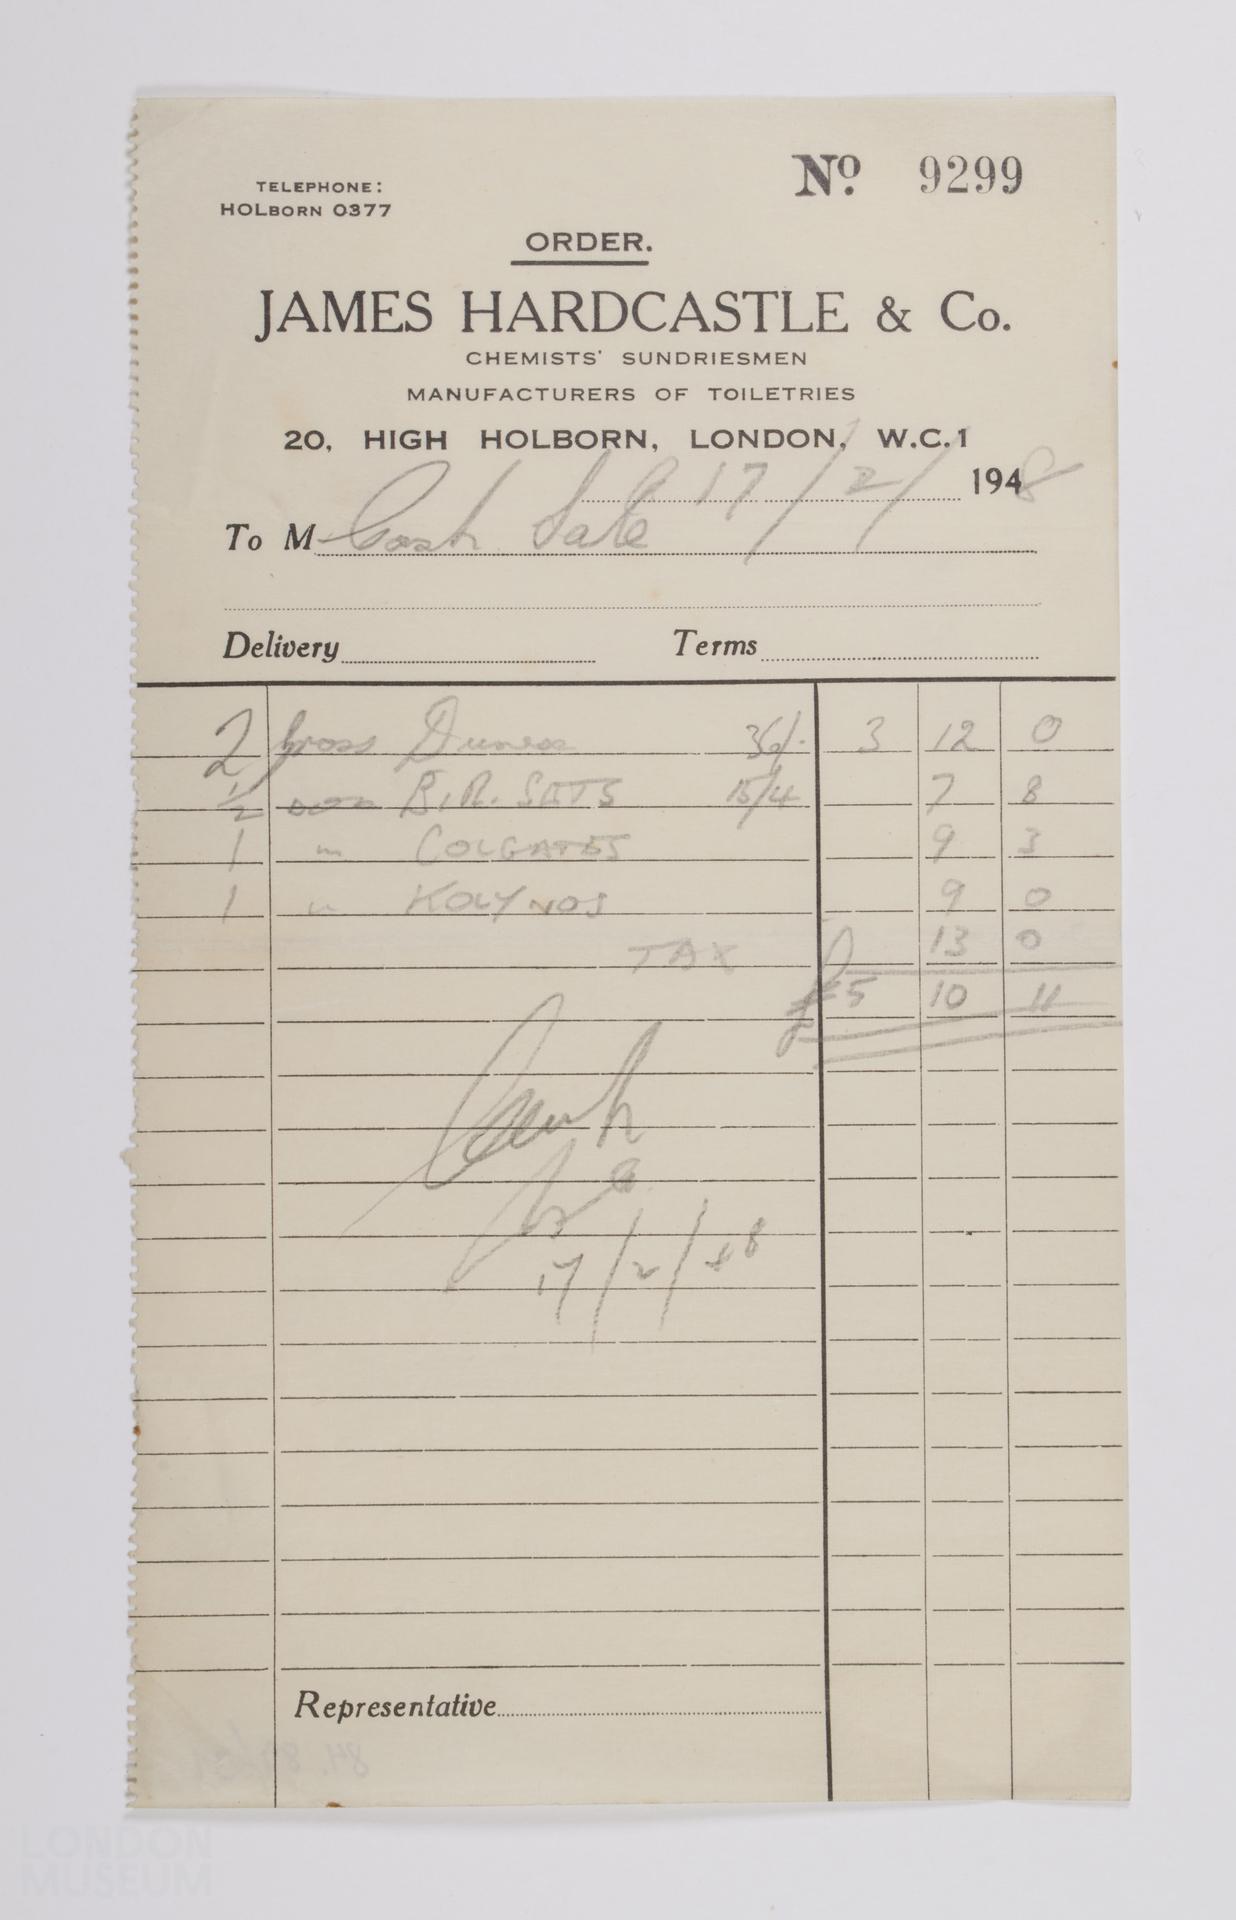 TELEPHONE:
HOLBORN 0377
Nº. 9299
ORDER.
JAMES HARDCASTLE & Co.
CHEMISTS' SUNDRIESMEN
MANUFACTURERS OF TOILETRIES
20, HIGH HOLBORN, LONDON, W.C.1
17/2/ 1948
To M Cash Sale
Delivery Terms
2 Gross Durex 36/- 3 12 0
1/2 doz B.R. SETS 15/4 7 8
1 " COLGATES 9 3
1 " KOLYNOS 9 0
TAX 13 0
£5 10 11
17/2/48
Representative
LONDON
MUSEUM